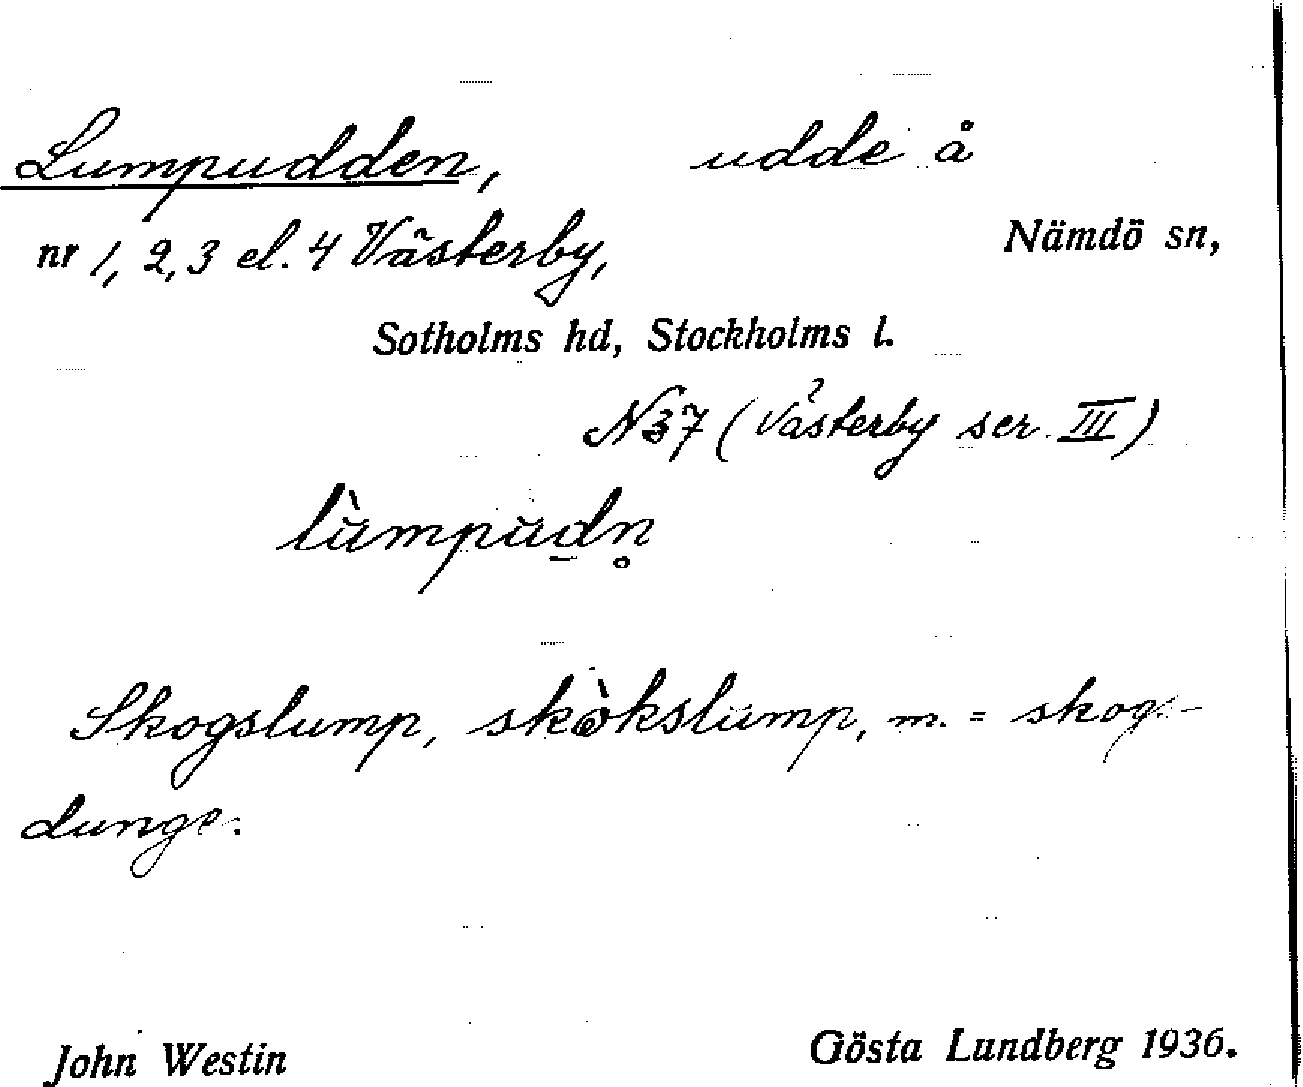 Lumpudden, udde å
nr 1, 2, 3 el. 4 Västerby, Nämdö sn,
Sotholms hd, Stockholms l.
N37 (Västerby ser. III)
lùmpudn̥
Skogslump, skòkslump, m. = skog-
dunge.
John Westin Gösta Lundberg 1936.